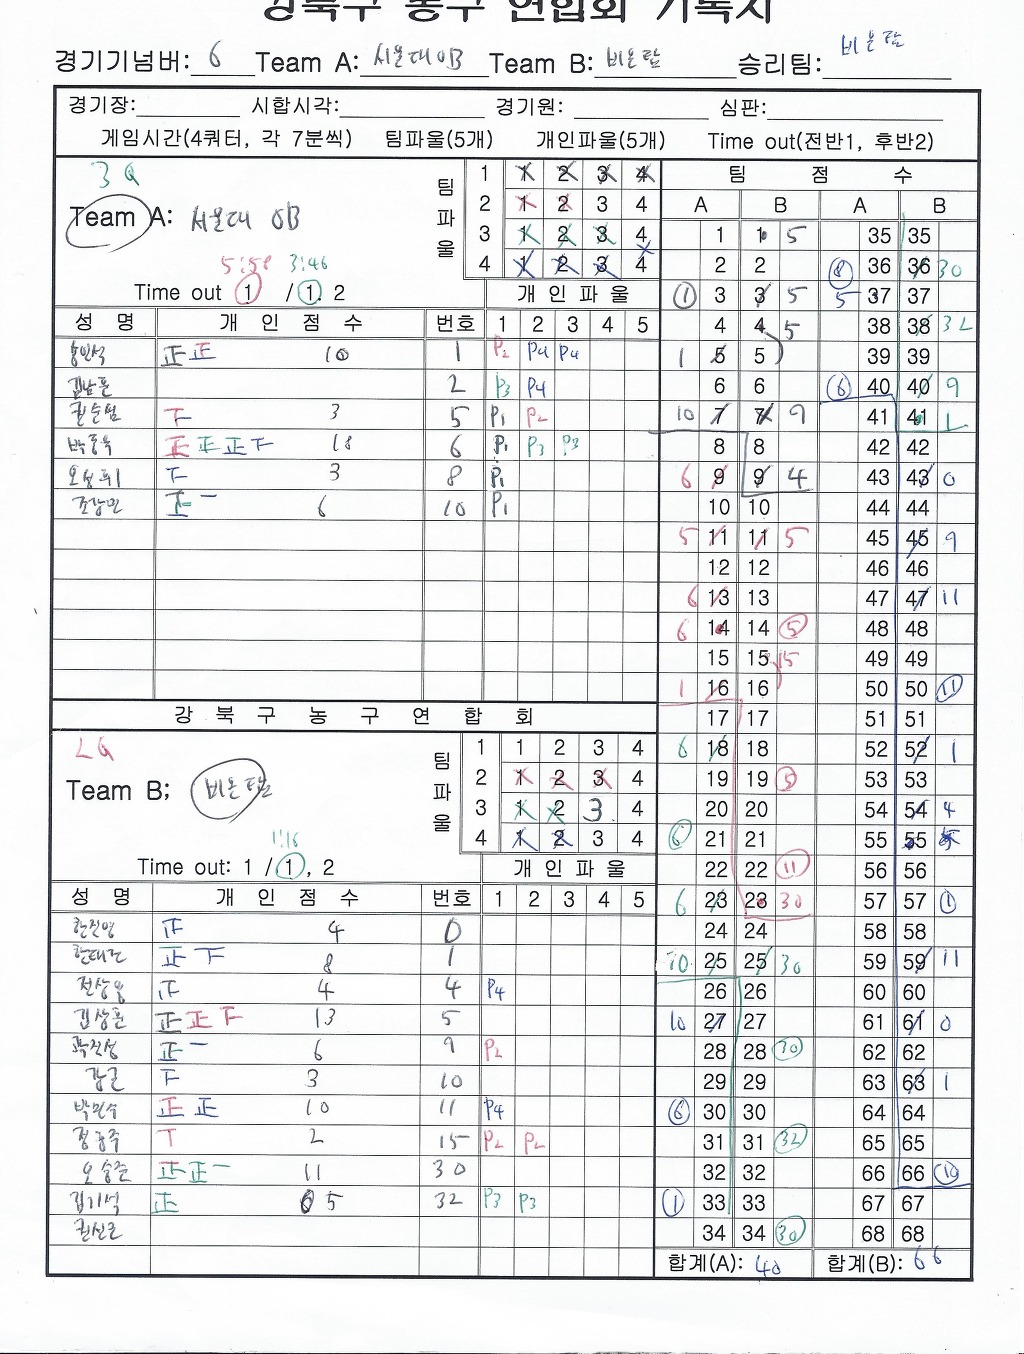 강북구 농구 연합회 기록지
경기기넘버: 6 Team A: 서울대 OB Team B: 비온탑 승리팀: 비온탑
경기장: 시합시각: 경기원: 심판:
게임시간(4쿼터, 각 7분씩) 팀파울(5개) 개인파울(5개) Time out(전반1, 후반2)
3Q
Team A: 서울대 OB
팀 파 울
1 1 2 3 4
2 1 2 3 4
3 1 2 3 4
4 1 2 3 4
5:58 3:46
Time out 1 / 1. 2 개 인 파 울
성 명 개 인 점 수 번호 1 2 3 4 5
송인석 正 正 10 1 P2 P4 P4
김남훈 2 P3 P4
권순범 3 5 P1 P2
박종욱 正 正 正 18 6 P1 P3 P3
3 8 P1
조장민 正 一 6 10 P1
강 북 구 농 구 연 합 회
LQ
Team B; 비온탑
팀 파 울
1 1 2 3 4
2 1 2 3 4
3 1 2 3 4
4 1 2 3 4
1:16
Time out: 1 / 1, 2 개 인 파 울
성 명 개 인 점 수 번호 1 2 3 4 5
한진영 4 0
한태근 正 8 1
전상용 4 4 P4
김상훈 正 正 13 5
곽진성 正 一 6 9 P2
3 10
박민수 正 正 10 11 P4
정용주 T 2 15 P2 P2
오승준 正 正 一 11 30
김기석 正 5 32 P3 P3
권신근
팀 점 수
A B A B
1 1 5 35 35
2 2 8 36 36 30
1 3 3 5 5 37 37
4 4 5 38 38 32
1 5 5 39 39
6 6 6 40 40 9
10 7 7 9 41 41 1
8 8 42 42
6 9 9 4 43 43 0
10 10 44 44
5 11 11 5 45 45 9
12 12 46 46
6 13 13 47 47 11
6 14 14 5 48 48
15 15 15 49 49
1 16 16 50 50 11
17 17 51 51
6 18 18 52 52 1
19 19 5 53 53
20 20 54 54 4
6 21 21 55 55
22 22 11 56 56
6 23 23 30 57 57 1
24 24 58 58
10 25 25 30 59 59 11
26 26 60 60
10 27 27 61 61 0
28 28 30 62 62
29 29 63 63 1
6 30 30 64 64
31 31 32 65 65
32 32 66 66 10
1 33 33 67 67
34 34 30 68 68
합계(A): 40 합계(B): 66